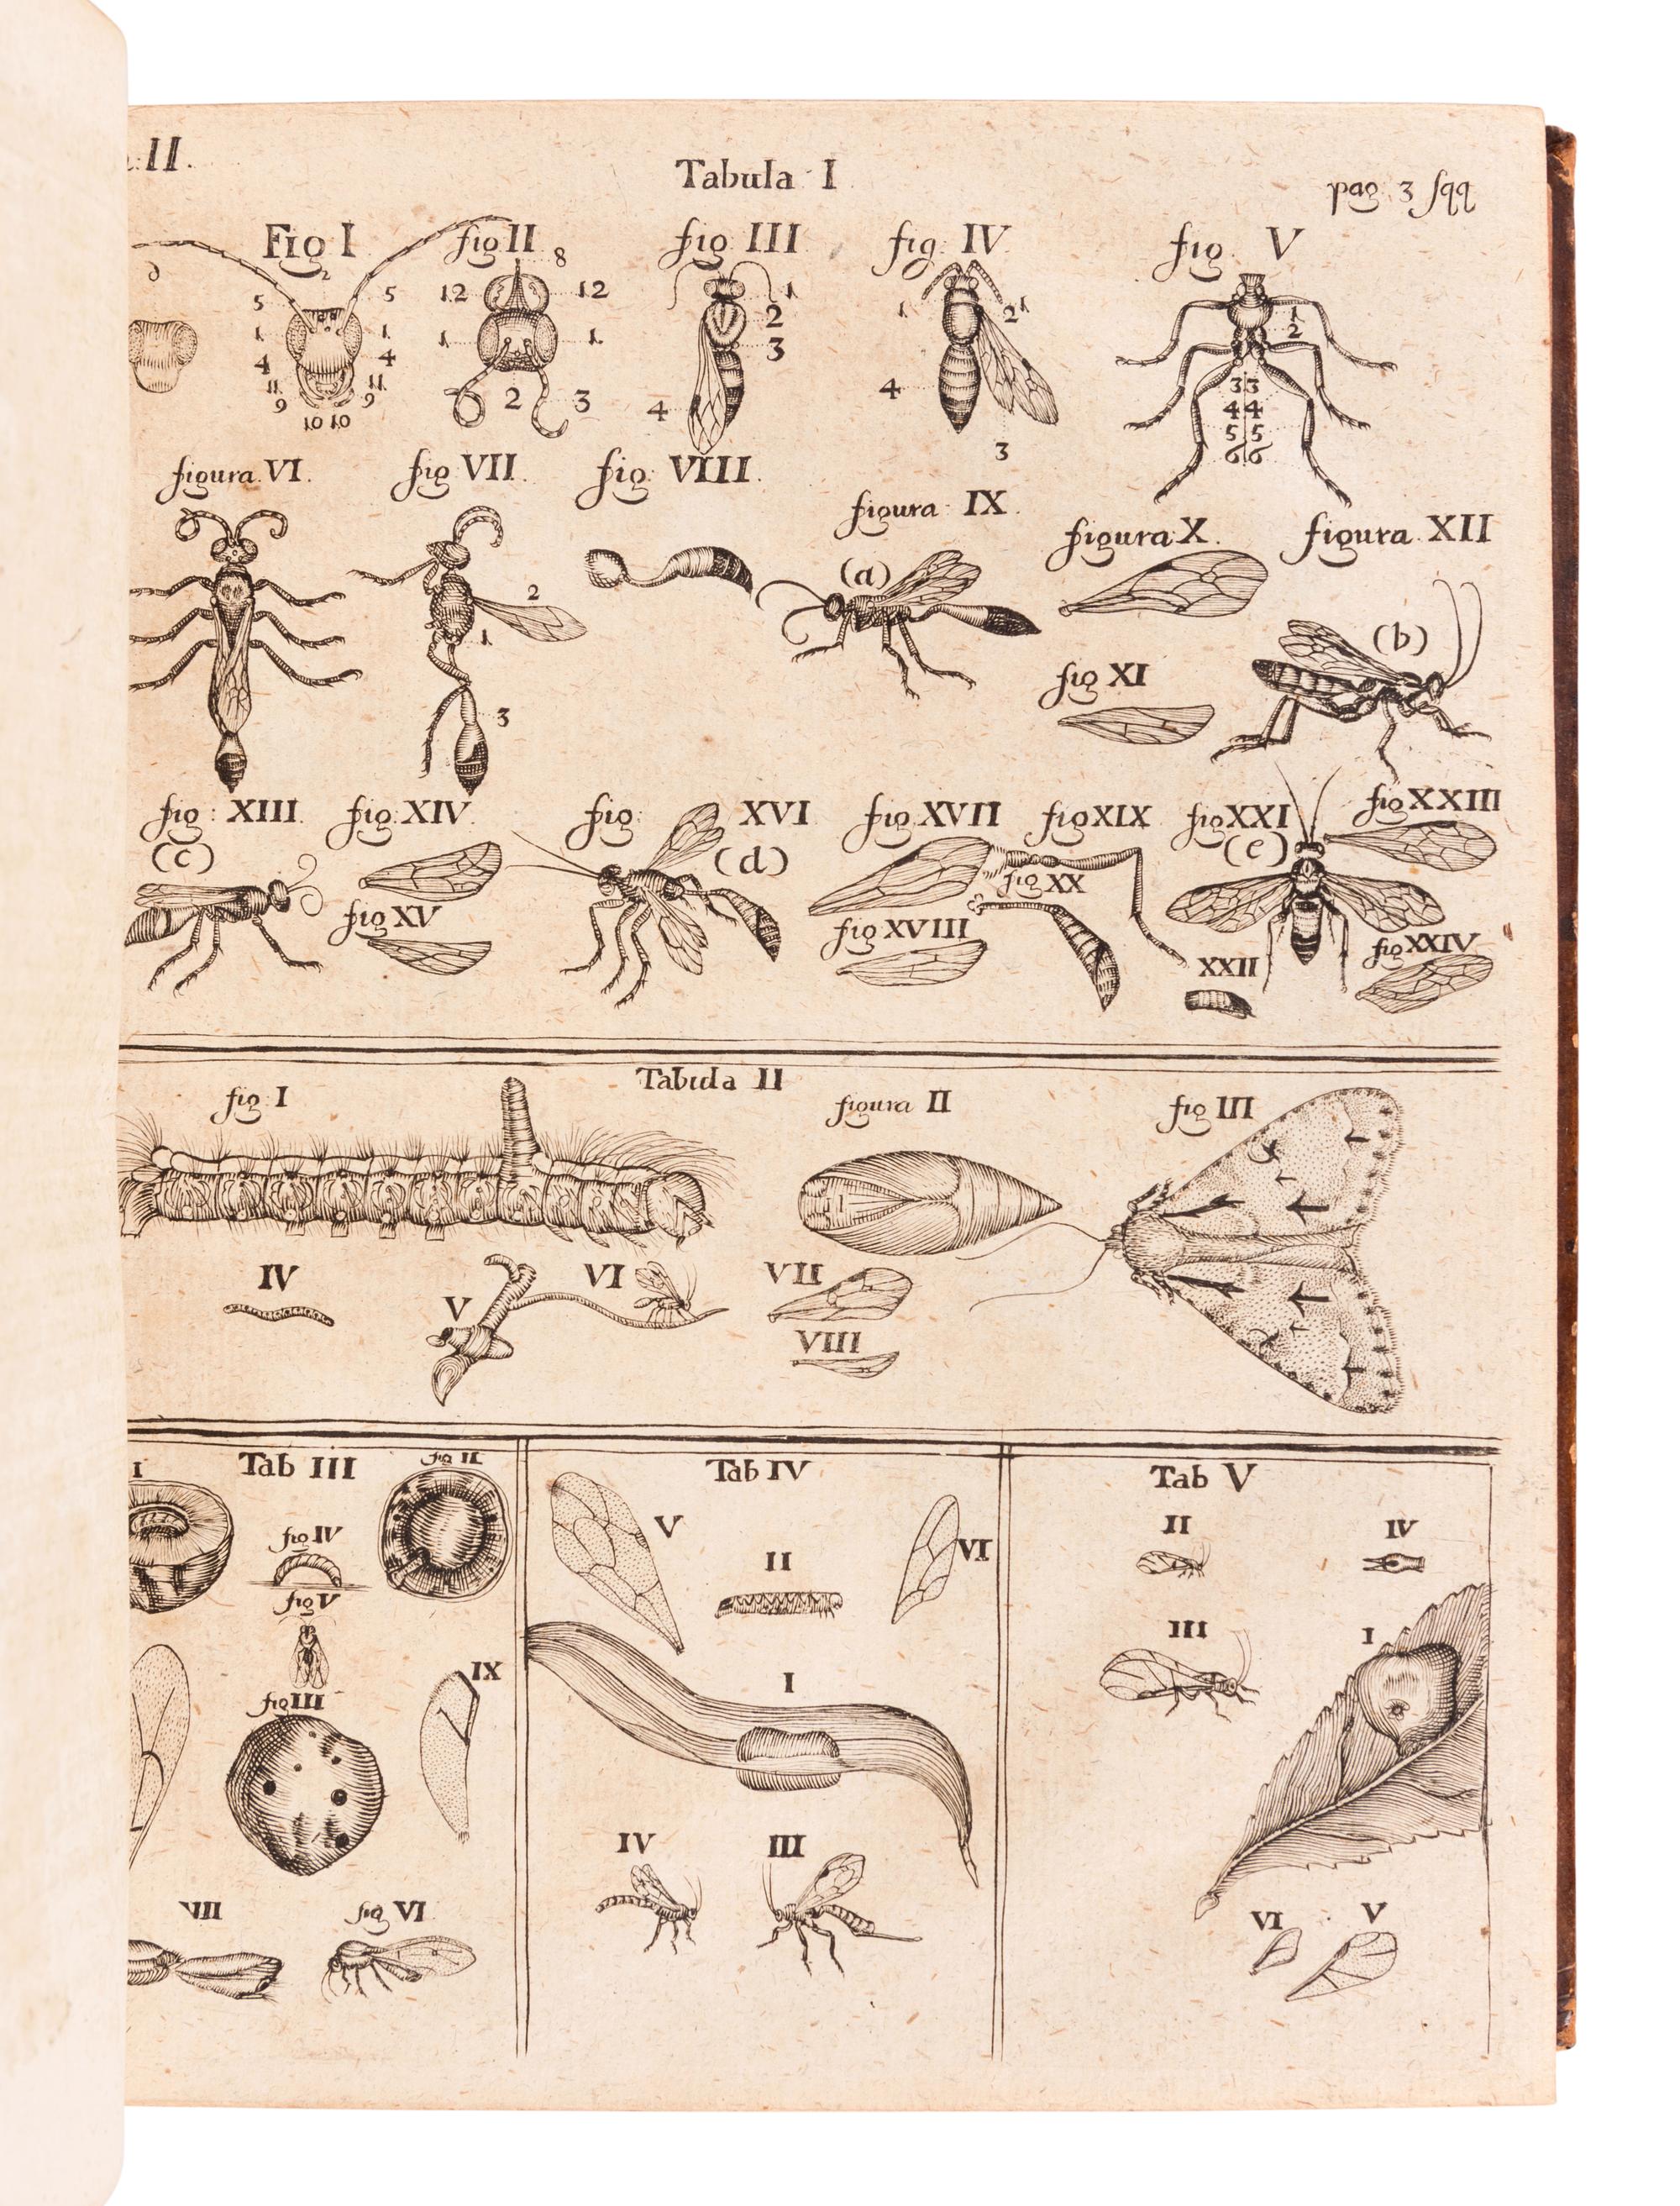 II.
Tabula I
pag 3 sqq
Fig I
fig II
fig III
fig: IV
fig V
2
5 5
1 1
4 4
11 11
9 9
10 10
8
12 12
1 1
2 3
1
2
3
4
1 2 1
4
3
1
2
3 3
4 4
5 5
6 6
figura VI.
fig VII
fig: VIII
figura IX.
figura X.
figura XII
2
1
3
(a)
(b)
fig XI
fig: XIII
(c)
fig: XIV
fig XV
fig: XVI
(d)
fig XVII
fig XVIII
fig XIX
fig XX
fig XXI
(e)
XXII
fig XXIII
fig XXIV
Tabula II
fig: I
figura II
fig III
IV
V
VI
VII
VIII
Tab III
I
fig II
fig IV
fig V
fig III
IX
VII
fig VI
Tab IV
V
II
VI
I
IV
III
Tab V
II
IV
III
I
VI
V